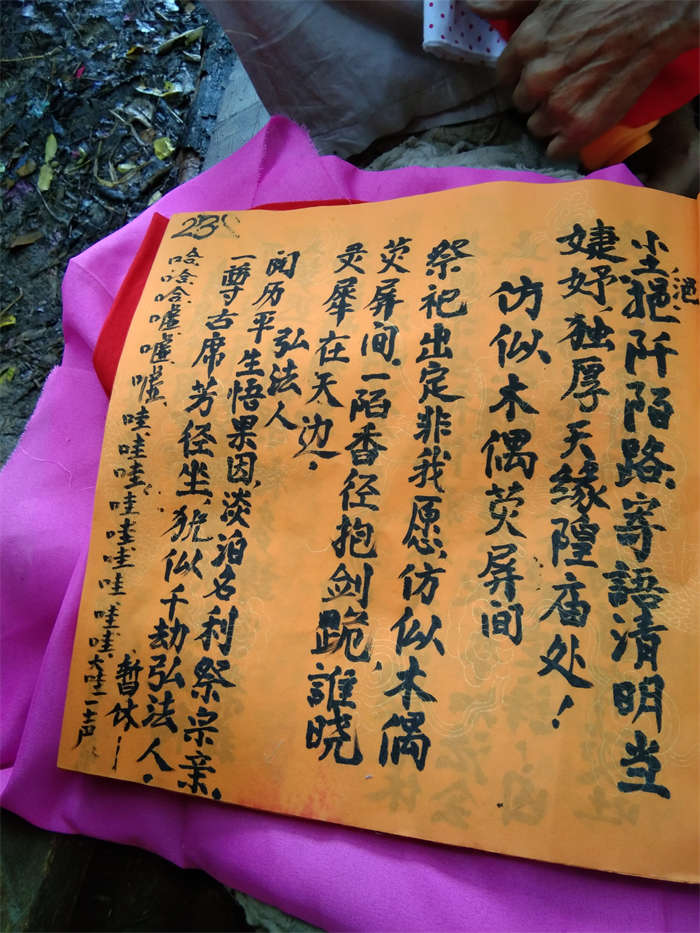 23
尘挹阡陌路、寄語清明当
浥
婕妤、独厚天缘隍庙处！
仿似木偶荧屏间
祭祀出定非我愿、仿似木偶
荧屏间、一陌香径抱剑跪、誰晓
灵犀在天边.
弘法人
阅历平生悟果因、淡泊名利祭宗亲、
一尊古席芳径坐、犹似千劫弘法人.
哈哈哈嘘嘘嘘、哇、哇哇、哇哇哇哇哇哇、大哇一声
暂休！